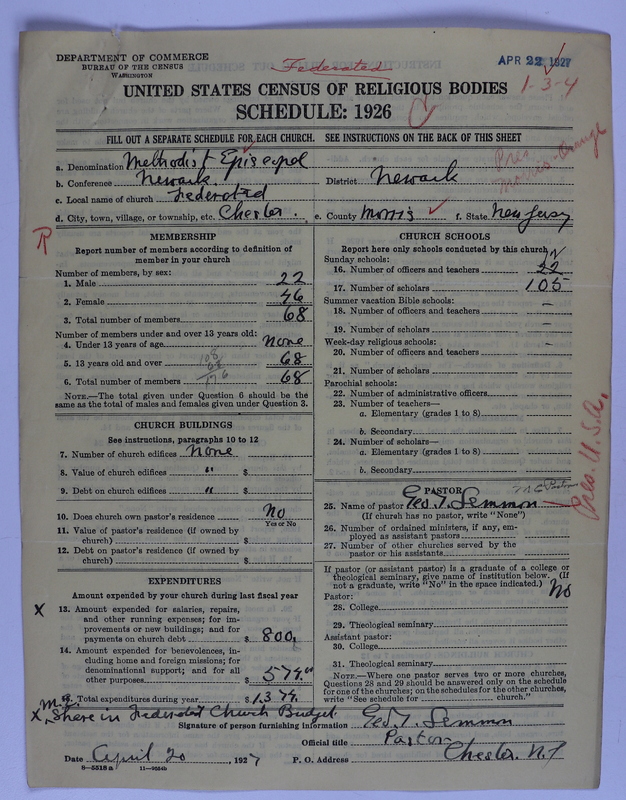 DEPARTMENT OF COMMERCE
BUREAU OF THE CENSUS
WASHINGTON
Federated
APR 22 1927
1-3-4
UNITED STATES CENSUS OF RELIGIOUS BODIES
SCHEDULE: 1926
FILL OUT A SEPARATE SCHEDULE FOR EACH CHURCH. SEE INSTRUCTIONS ON THE BACK OF THIS SHEET
Pres
Morris-Orange
a. Denomination Methodist Episcopal
b. Conference Newark. District Newark
c. Local name of church Federated
d. City, town, village, or township, etc. Chester. e. County Morris f. State New Jersy
R
MEMBERSHIP
Report number of members according to definition of
member in your church
Number of members, by sex:
1. Male 22
2. Female 46
3. Total number of members 68
Number of members under and over 13 years old:
4. Under 13 years of age none
5. 13 years old and over 68
6. Total number of members 68
108
68
176
NOTE.—The total given under Question 6 should be the
same as the total of males and females given under Question 3.
CHURCH BUILDINGS
See instructions, paragraphs 10 to 12
7. Number of church edifices none
8. Value of church edifices " $
9. Debt on church edifices " $
10. Does church own pastor's residence No
Yes or No
11. Value of pastor's residence (if owned by
church) $
12. Debt on pastor's residence (if owned by
church) $
EXPENDITURES
Amount expended by your church during last fiscal year
X 13. Amount expended for salaries, repairs,
and other running expenses; for im-
provements or new buildings; and for
payments on church debt $ 800,
14. Amount expended for benevolences, in-
cluding home and foreign missions; for
denominational support; and for all
other purposes $ 574.00
15. Total expenditures during year $ 1,374.
CHURCH SCHOOLS
Report here only schools conducted by this church
Sunday schools:
16. Number of officers and teachers 22
17. Number of scholars 105
Summer vacation Bible schools:
18. Number of officers and teachers —
19. Number of scholars —
Week-day religious schools: —
20. Number of officers and teachers
21. Number of scholars
Parochial schools:
22. Number of administrative officers
23. Number of teachers—
a. Elementary (grades 1 to 8)
b. Secondary
24. Number of scholars—
a. Elementary (grades 1 to 8)
b. Secondary
Pres. U.S.A.
PASTOR
25. Name of pastor Geo. T. Lemmon
(If church has no pastor, write "None")
26. Number of ordained ministers, if any, em-
ployed as assistant pastors
27. Number of other churches served by the
pastor or his assistants
If pastor (or assistant pastor) is a graduate of a college or
theological seminary, give name of institution below. (If
not a graduate, write "No" in the space indicated.) No
Pastor:
28. College
29. Theological seminary
Assistant pastor:
30. College
31. Theological seminary
NOTE.—Where one pastor serves two or more churches,
Questions 28 and 29 should be answered only on the schedule
for one of the churches; on the schedules for the other churches,
write "See schedule for church."
X M.E. Share in Federated Church Budget.
Signature of person furnishing information Geo. T. Lemmon
Official title Pastor
Date April 20, 1927 P. O. Address Chester. N.J
8—5518a 11—9554b